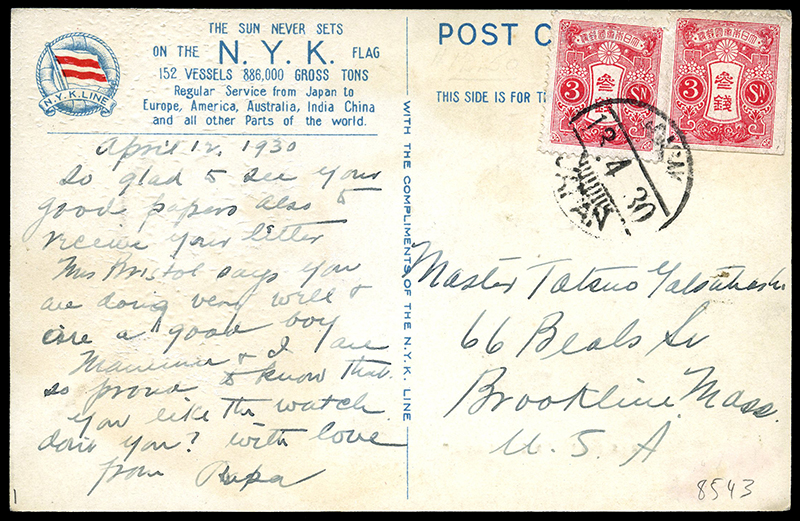 THE SUN NEVER SETS
ON THE N. Y. K. FLAG
152 VESSELS 886,000 GROSS TONS
Regular Service from Japan to
Europe, America, Australia, India China
and all other Parts of the world.
N.Y.K.LINE
April 12, 1930
So glad to see your
good papers also to
receive your letter
Mrs Bristol says you
are doing very well &
are a good boy
Mamma & I are
so proud to know that
you like the watch
don't you? with love
from Papa
WITH THE COMPLIMENTS OF THE N.Y.K. LINE
POST C
THIS SIDE IS FOR TH
大日本帝國郵便
3 SN
參錢
大日本帝國郵便
3 SN
參錢
12.4.30
JAPAN
Master Tatsuo
66 Beals St
Brookline Mass.
U. S. A
8543
1